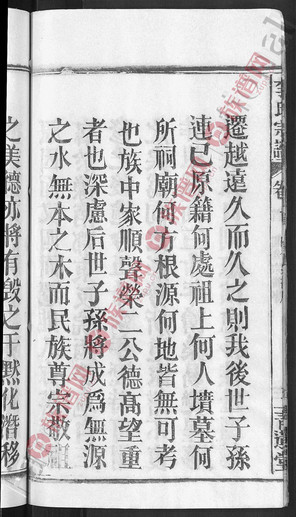 李氏宗譜
卷首
遷越遠久而久之則我後世子孫
連已原籍何處祖上何人墳墓何
所祠廟何方根源何地皆無可考
也族中家順聲榮二公德高望重
者也深慮后世子孫將成爲無源
之水無本之木而民族尊宗敬
之美德亦將有毀之于黙化潛移
族谱网